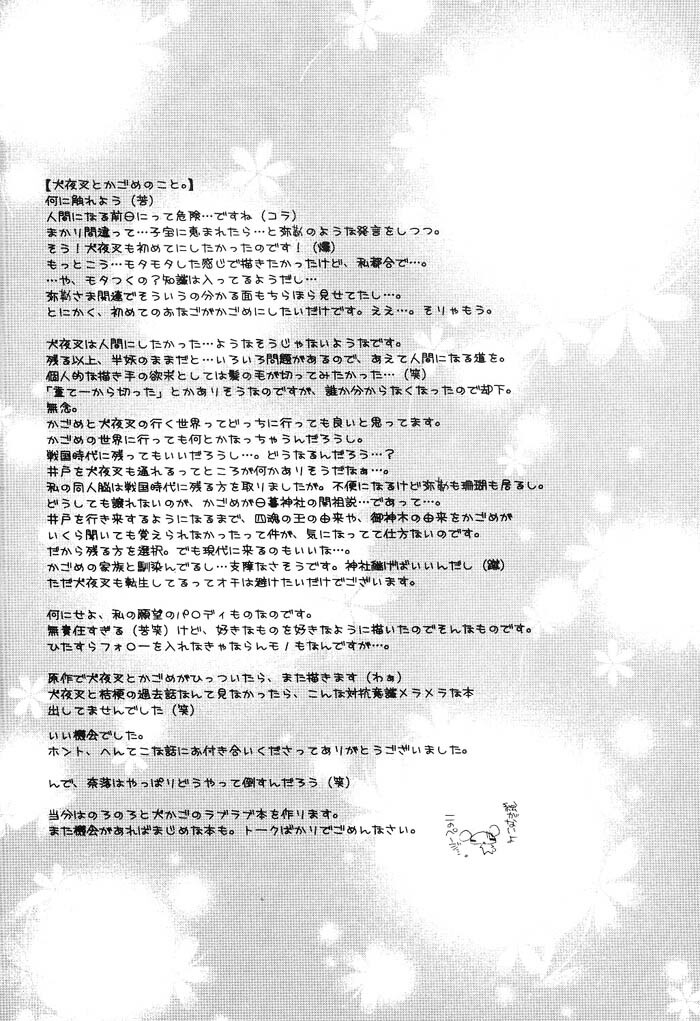 【犬夜叉とかごめのこと。】
何に触れよう（苦）
人間になる前日にって危険…ですね（コラ）
まかり間違って…子宝に恵まれたら…と弥勒のような発言をしつつ。
そう！犬夜叉も初めてにしたかったのです！（爆）
もっとこう…モタモタした感じで描きたかったけど、私都合で…。
…や、モタつくの？知識は入ってるようだし…
弥勒さま関連でそういうの分かる面もちらほら見せてたし…。
とにかく、初めてのおなごがかごめにしたいだけです。ええ…。そりゃもう。
犬夜叉は人間にしたかった…ようなそうじゃないようなです。
残る以上、半妖のままだと…いろいろ問題があるので、あえて人間になる道を。
個人的な描き手の欲求としては髪の毛が切ってみたかった…（笑）
「重てーから切った」とかありそうなのですが、誰か分からなくなったので却下。
無念。
かごめと犬夜叉の行く世界ってどっちに行っても良いと思ってます。
かごめの世界に行っても何とかなっちゃうんだろうし。
戦国時代に残ってもいいだろうし…。どうなるんだろう…？
井戸を犬夜叉も通れるってところが何かありそうだなぁ…。
私の同人脳は戦国時代に残る方を取りましたが。不便になるけど弥勒も珊瑚も居るし。
どうしても譲れないのが、かごめが日暮神社の開祖説…であって…。
井戸を行き来するようになるまで、四魂の玉の由来や、御神木の由来をかごめが
いくら聞いても覚えられなかったって件が、気になってて仕方ないのです。
だから残る方を選択。でも現代に来るのもいいな…。
かごめの家族と馴染んでるし…支障なさそうです。神社継げばいいんだし（蹴）
ただ犬夜叉も転生してるってオチは避けたいだけでございます。
何にせよ、私の願望のパロディものなのです。
無責任すぎる（苦笑）けど、好きなものを好きなように描いたのでそんなものです。
ひたすらフォローを入れなきゃならんモノなんですが…。
原作で犬夜叉とかごめがひっついたら、また描きます（わぁ）
犬夜叉と桔梗の過去話なんて見なかったら、こんな対抗意識メラメラな本
出してませんでした（笑）
いい機会でした。
ホント、へんてこな話にお付き合いくださってありがとうございました。
んで、奈落はやっぱりどうやって倒すんだろう（笑）
当分はのろのろと犬かごのラブラブ本を作ります。
また機会があればまじめな本も。トークばかりでごめんなさい。